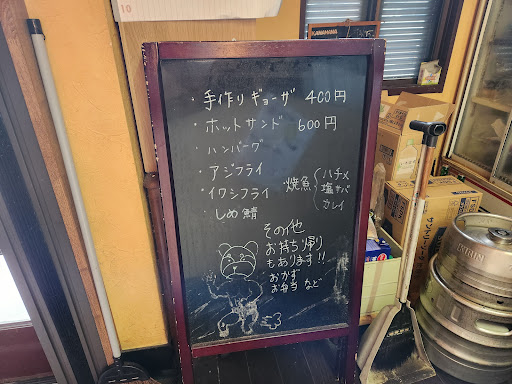 ・手作りギョーザ 400円
・ホットサンド 600円
・ハンバーグ
・アジフライ
・イワシフライ
・しめ鯖
・焼魚
ハチメ
塩サバ
カレイ
その他
お持ち帰り
もあります!!
おかず
お弁当 など
10
KIRIN